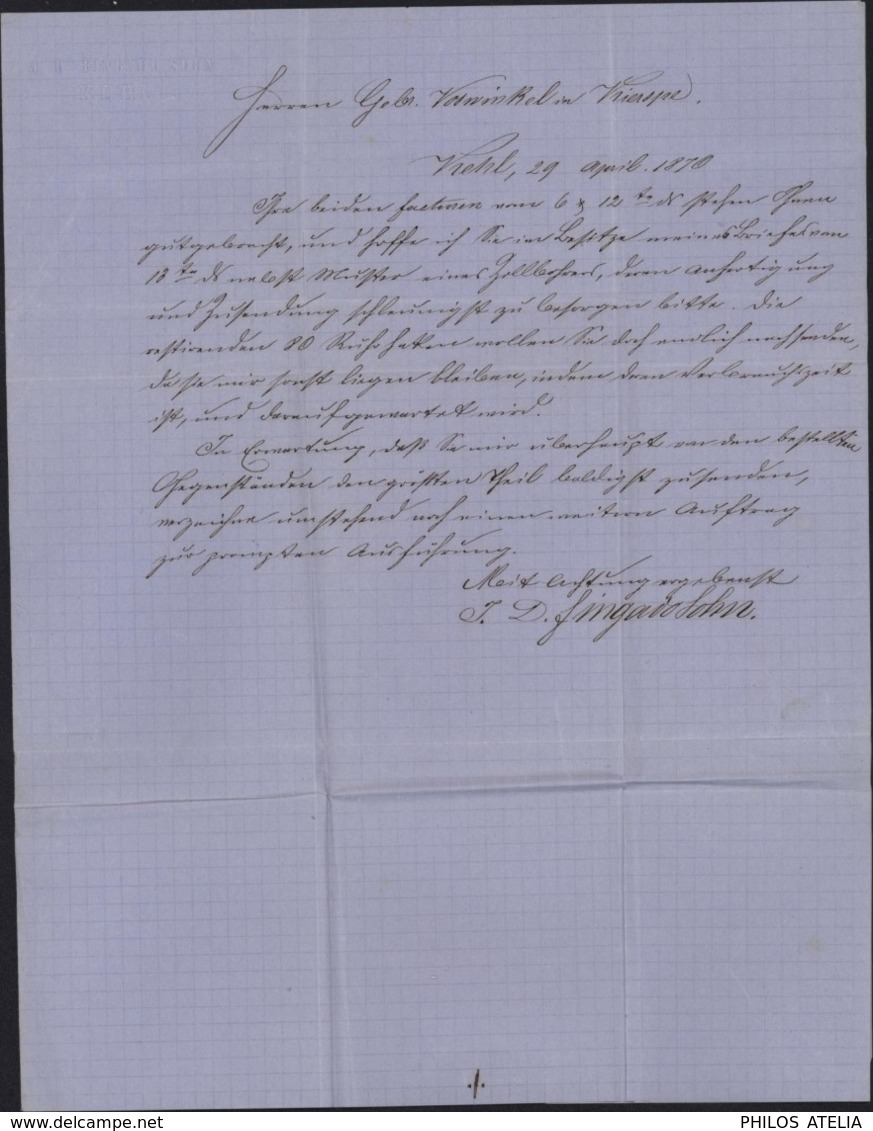 Herren Gebr. Vorwinkel in Kierspe.
Kehl, 29 April. 1870
Ihre beiden Facturen vom 6 & 12 ten ds stehen Ihnen
gutgebracht, und hoffe ich Sie im Besitze meines Briefes vom
18 ten ds nebst Muster eines Zollbohrers, deren Anfertigung
und Zusendung schleunigst zu besorgen bitte. Die
restirenden 80 wollen Sie doch endlich nachsenden,
da sie mir sonst liegen bleiben, indem deren Verbrauchszeit
ist, und darauf gewartet wird.
In Erwartung, daß Sie mir überhaupt von den bestellten
Gegenständen den größten Theil baldigst zusenden,
verzeichne umstehend noch einen weitern Auftrag
zur prompten Ausführung.
Mit Achtung ergebenst
J. D. Sohn.
./.
www.delcampe.net
PHILOS ATELIA